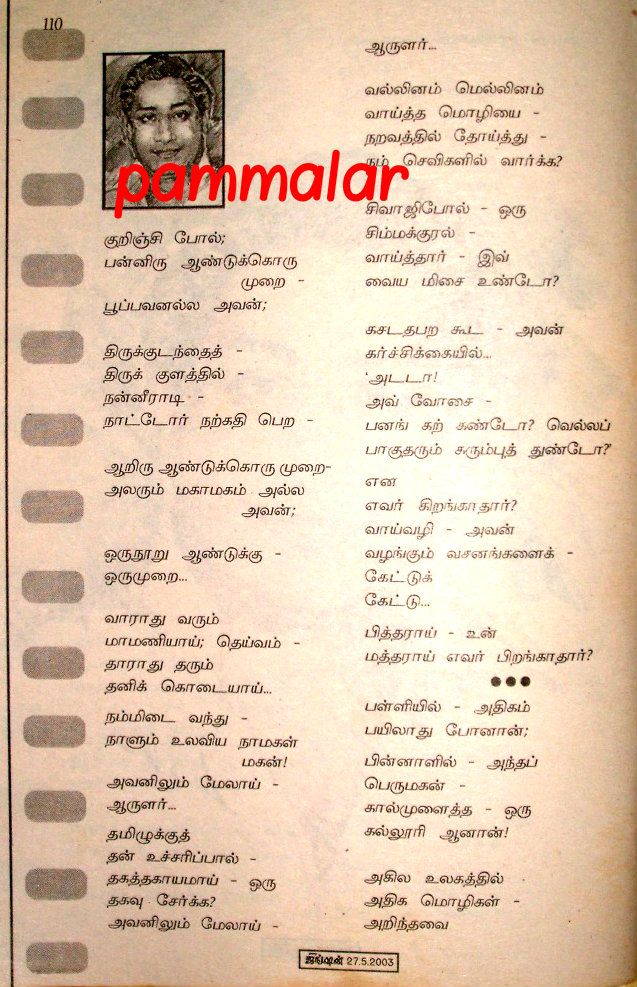 110
pammalar
குறிஞ்சி போல்;
பன்னிரு ஆண்டுக்கொரு
முறை -
பூப்பவனல்ல அவன்;
திருக்குடந்தைத் -
திருக் குளத்தில் -
நன்னீராடி -
நாட்டோர் நற்கதி பெற -
ஆறிரு ஆண்டுக்கொரு முறை-
அலரும் மகாமகம் அல்ல
அவன்;
ஒருநூறு ஆண்டுக்கு -
ஒருமுறை...
வாராது வரும்
மாமணியாய்; தெய்வம் -
தாராது தரும்
தனிக் கொடையாய்...
நம்மிடை வந்து -
நாளும் உலவிய நாமகள்
மகன்!
அவனிலும் மேலாய் -
ஆருளர்...
தமிழுக்குத்
தன் உச்சரிப்பால் -
தகத்தகாயமாய் - ஒரு
தகவு சேர்க்க?
அவனிலும் மேலாய் -
ஆருளர்...
வல்லினம் மெல்லினம்
வாய்த்த மொழியை -
நறவத்தில் தோய்த்து -
நம் செவிகளில் வார்க்க?
சிவாஜிபோல் - ஒரு
சிம்மக்குரல் -
வாய்த்தார் - இவ்
வைய மிசை உண்டோ?
கசடதபற கூட - அவன்
கர்ச்சிக்கையில்...
'அடடா!
அவ் வோசை -
பனங் கற் கண்டோ? வெல்லப்
பாகுதரும் கரும்புத் துண்டோ?'
என
எவர் கிறங்காதார்?
வாய்வழி - அவன்
வழங்கும் வசனங்களைக் -
கேட்டுக்
கேட்டு...
பித்தராய் - உன்
மத்தராய் எவர் பிறங்காதார்?
●●●
பள்ளியில் - அதிகம்
பயிலாது போனான்;
பின்னாளில் - அந்தப்
பெருமகன் -
கால்முளைத்த - ஒரு
கல்லூரி ஆனான்!
அகில உலகத்தில்
அதிக மொழிகள் -
அறிந்தவை
ஜங்ஷன் 27.5.2003